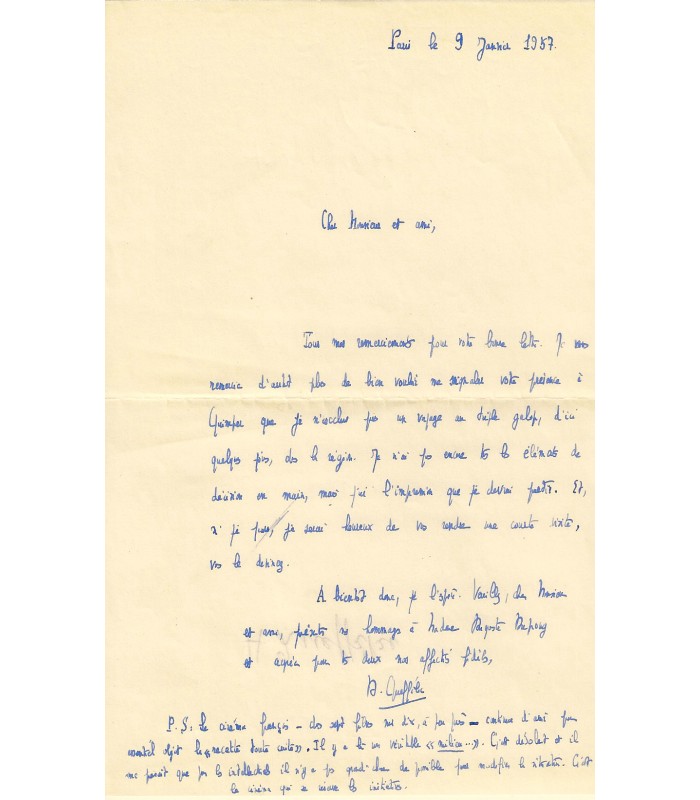 Paris le 9 Janvier 1957.
Cher Monsieur et ami,
Tous mes remerciements pour votre bonne lettre. Je vous
remercie d'autant plus de bien vouloir me signaler votre présence à
Quimper que je n'exclus pas un voyage au triple galop, d'ici
quelques jours, dans la région. Je n'ai pas encore tous les éléments de
décision en main, mais j'ai l'impression que je devrai partir. Et,
si je pars, je serai heureux de vous rendre une courte visite,
vous le devinez.
A bientôt donc, je l'espère. Veuillez, cher Monsieur
et ami, présenter mes hommages à Madame Auguste Dupouy
et agréer pour tous deux nos affectés fidèles,
H. Queffélec
P.S: Le cinéma français - dans sept films sur dix, à peu près - continue d'avoir pour
essentiel objet les «racontés toute contes». Il y a là un véritable «milieu...». C'est désolant et il
me paraît que pour les intellectuels il n'y a pas grand'chose de possible pour modifier la situation. C'est
le cinéma qui se réserve les initiatives.